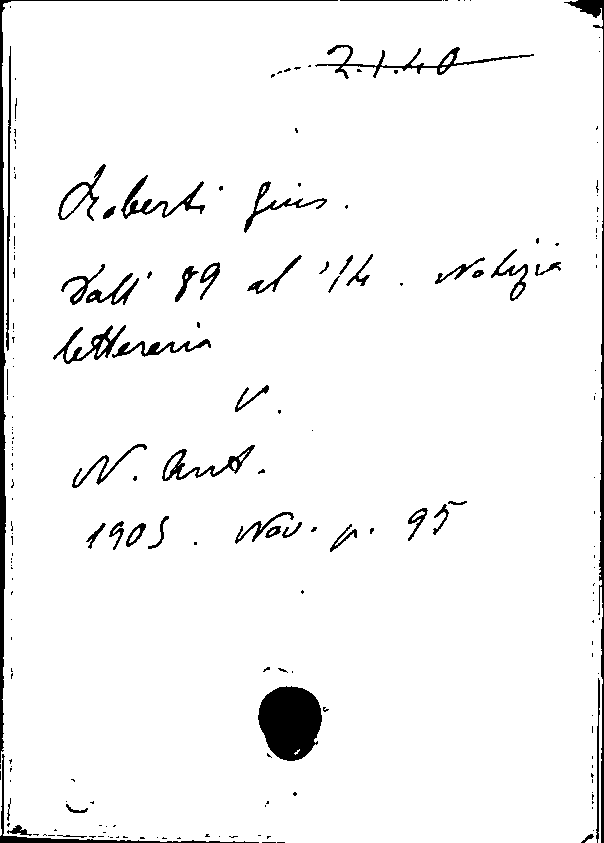 2.1.40
Roberti Gius.
Dall' 89 al '14. Notizia
letteraria
v.
N. Ant.
1903. Nov. p. 95